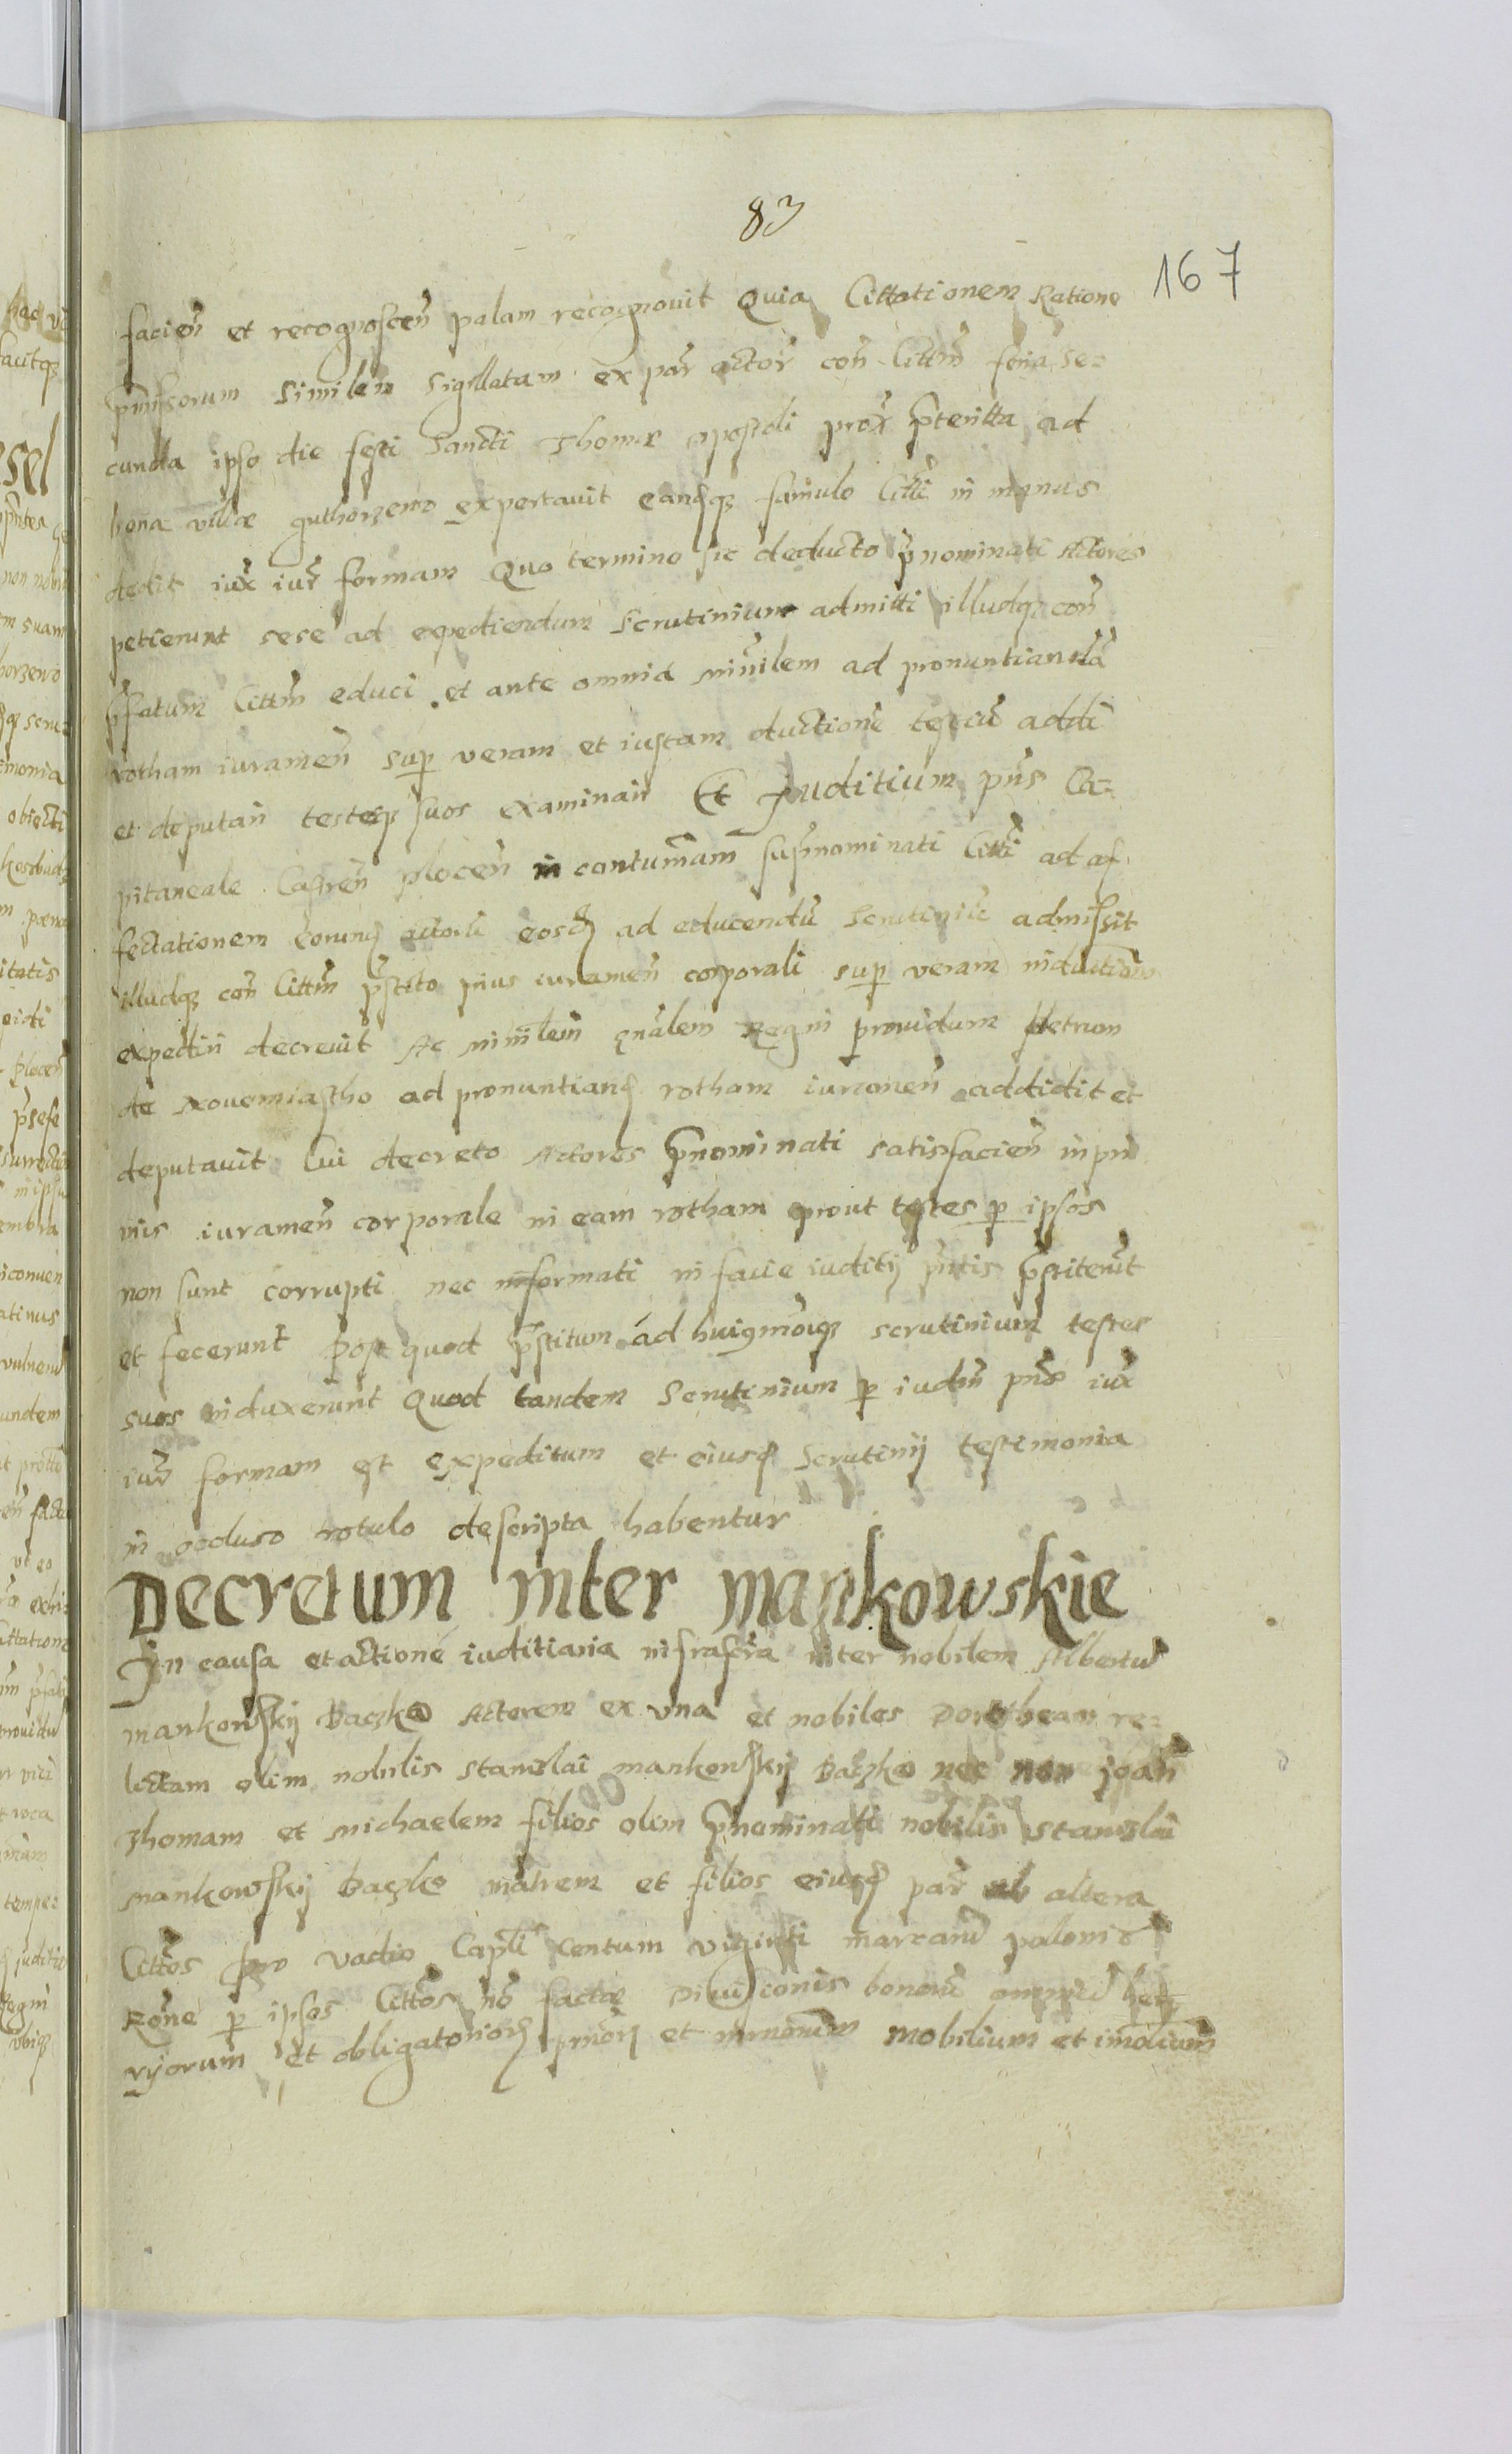 83
167
facien̄ et recognoscen̄ palam recognouit Quia Cittationem Ratione
p̄missorum similem sigillatam ex par̄ actor̄ con̄ Citt̄m feria se=
cunda ipso die festi Sancti Thomæ apostoli prox̄ p̄teritta ad
bona villæ guthorzewo exportauit eandq̨ famulo Citt̄i in manus
dedit iux̄ iur̄ formam Quo termino sic deducto p̄nominati Actores
petierunt sese ad expediendum Scrutinium admitti illudq̨ con̄
p̄fatum Citt̄m educi et ante omnia min̄ilem ad pronuntiandā
rotham iuramen̄ sup̱ veram et iustam ductionē testiū addi
et deputari testesq̨ suos examinari Et Juditium pn̄s Ca=
pitaneale Castren̄ plocen̄ in contum̄am sup̄nominati Citt̄i ad af
fectationem eorund̨ actorū eosd̨ ad educendū scrutiniū admissit
illudq̨ con̄ Citt̄m p̄stito prius iuramen̄ corporali sup̱ veram inductionē
expediri decreuit Ac min̄ilem gn̄alem Regni prouidum Petrum
de Nouemiastho ad pronuntiand̨ rotham iuramen̄ addidit et
deputauit Cui decreto Actores p̄nominati satisfacien̄ inpri
mis iuramen̄ corporale in eam rotham prout testes p̱ ipsos
non sunt corrupti nec informati in facie iuditij p̄ntis p̄stiterūt
et fecerunt Post quod p̄stitum ad huigmōi scrutinium testes
suos induxerunt Quod tandem Scrutinium p̱ iudm̄ pn̄s iux̄
iur̄ formam est expeditum et eiusd̨ Scrutinij testimonia
in occluso rotulo descripta habentur
Decretum inter Mankowskie
In causa et actione iuditiaria infrascr̄a inter nobilem Albertū
mankowskij Baczko Actorem ex vna et nobiles Dorotheam re=
lictam olim nobilis stanislai mankowskij Baczko nec non joan̄
Thomam et Michaelem filios olim p̄nominati nobilis Stanislai
mankowskij Baczko matrem et filios eiusd̨ par̄ ab altera
Citt̄os pro vadio Cap̄li Centum viginti marcarū polon̄
Rōne p̱ ipsos Citt̄os nō factæ Diuisionis bonorū omniū here
ryorum et obligatorior̨ et minorum Mobilium et imōlium